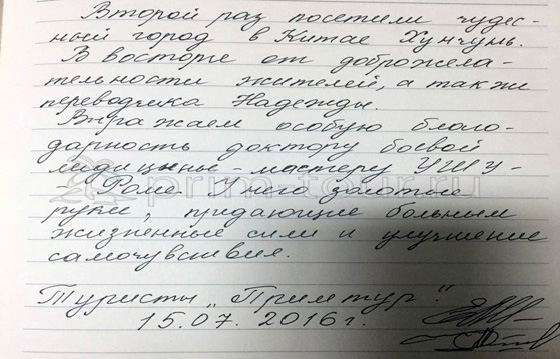 Второй раз посетили чудес-
ный город в Китае Хунчунь.
В восторге от доброжела-
тельности жителей, а также
переводчика Надежды.
Выражаем особую благо-
дарность доктору боевой
медицины – мастеру УШУ –
Роме. У него золотые
руки, придающие больным
жизненные силы и улучшение
самочувствия.
Туристы „Примтур".
15.07. 2016г.
primtour.ru